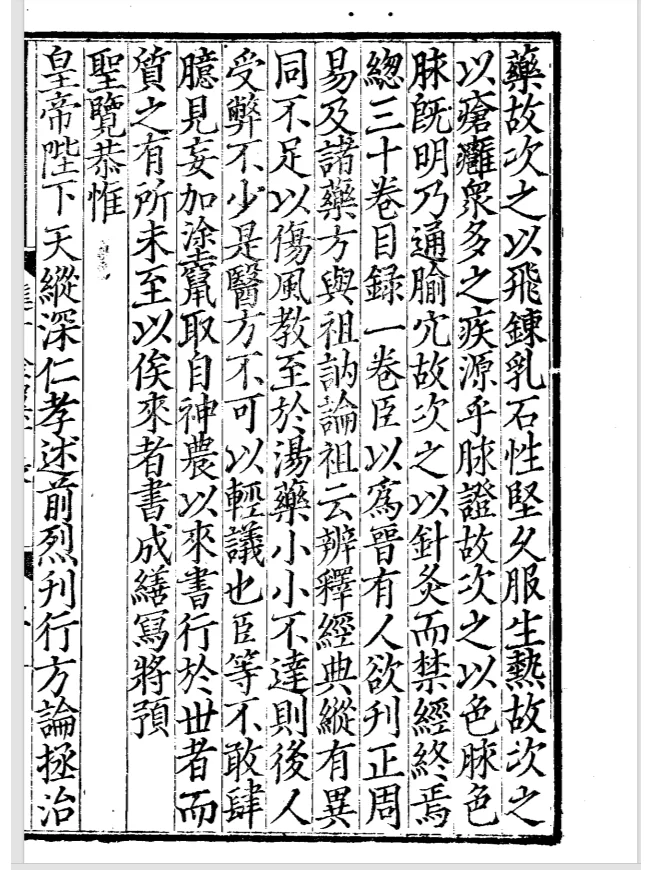 藥故次之以飛鍊乳石性堅久服生熱故次之
以瘡癰衆多之疾源乎脉證故次之以色脉色
脉旣明乃通腧穴故次之以針灸而禁經終焉
緫三十卷目録一卷臣以爲晉有人欲刋正周
易及諸藥方與祖訥論祖云辨釋經典縱有異
同不足以傷風教至於湯藥小小不達則後人
受弊不少是醫方不可以輕議也臣等不敢肆
臆見妄加塗竄取自神農以來書行於世者而
質之有所未至以俟來者書成繕寫將預
聖覽恭惟
皇帝陛下天縱深仁孝述前烈刋行方論拯治